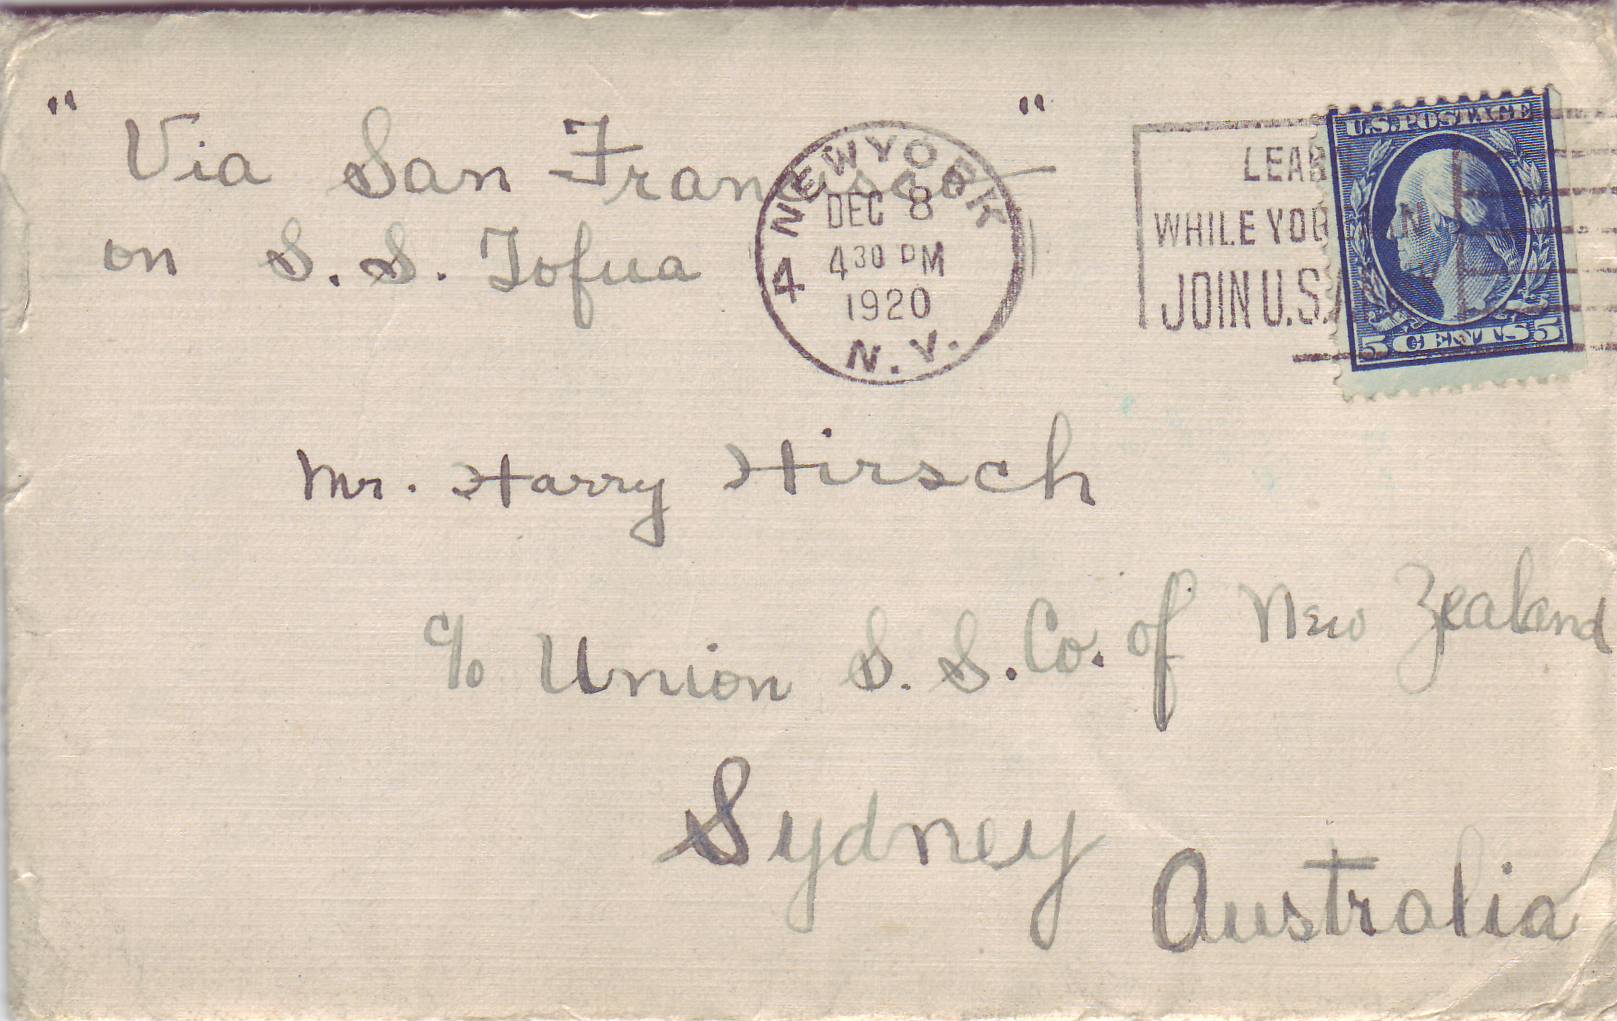 "Via San Francisco"
on S. S. Tofua
NEW YORK
DEC 8
4 30 PM
1920
4
N.Y.
LEAR
WHILE YOU
JOIN U.S.
U.S. POSTAGE
5 CENTS 5
Mr. Harry Hirsch
c/o Union S. S. Co. of New Zealand
Sydney
Australia